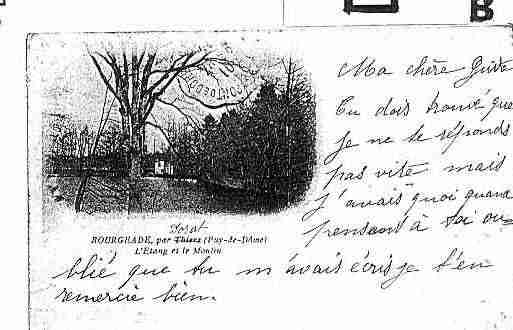 B
Ma chère
Tu dois trouvé que
je ne te réponds
pas vite mais
j'avais quoi quand
pensant à toi ou-
Josat
BOURGHADE, par Thiers (Puy-de-Dôme)
L'Étang et le Moulin
blié que tu m'avais écris je t'en
remercie bien.